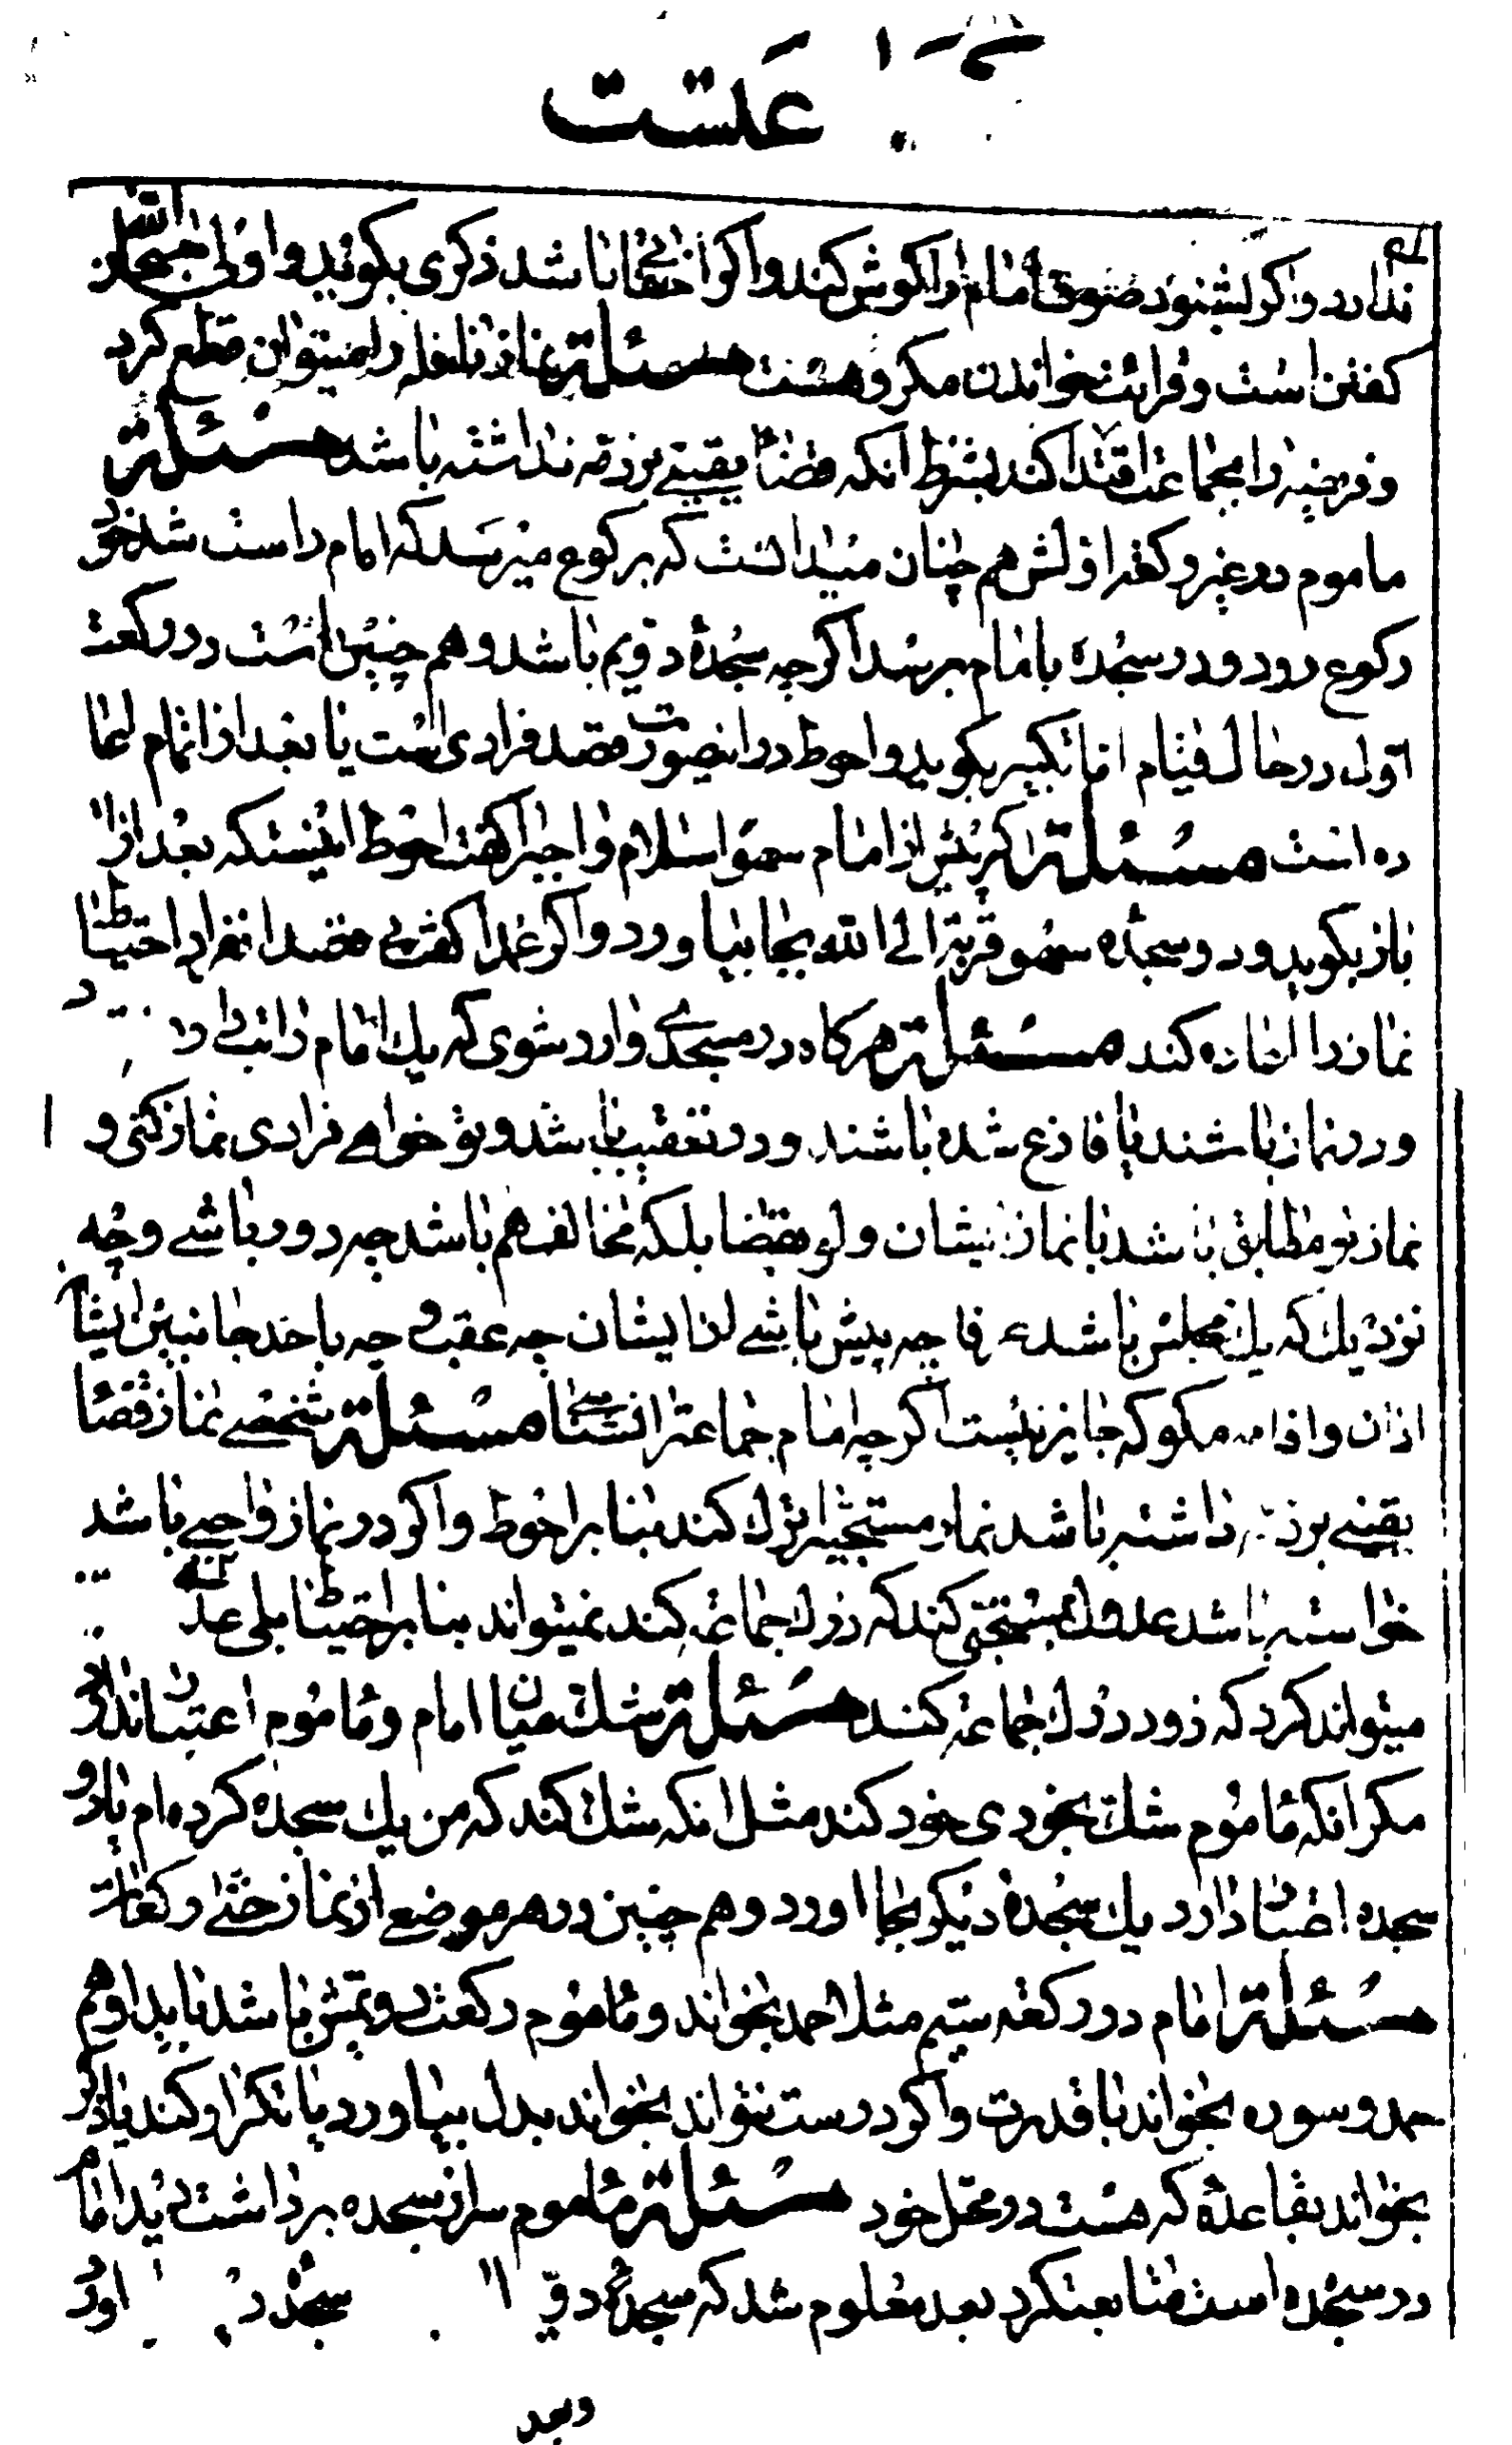 عتست
ندارد و اگر بشنود صوت امام را گوش کند و اگر اخفاتا باشد ذکری بگوید و اولی سبحان الله
گفتن است و قرائت خواندن مکروهست مسئلة نماز نافله را میتوان قطع کرد
و فریضه را بجماعت اقتدا کند بشرط آنکه قضاء یقینی بر ذمه نداشته باشد مسئلة
ماموم در غیر رکعه اولش هم چنان میدانست که برکوع میرسد که امام راست شد خود
رکوع رود و در سجده بامام برسد اگرچه سجدهٔ دویم باشد و هم چنین است در رکعت
اول در حال قیام اما تکبیر بگوید و احوط در اینصورت قصد فرادی است یا بعد از اتمام اعا
ده است مسئلة اگر پیش از امام سهوا سلام واجب را گفت احوط اینستکه بعد از ان
باز بگوید و دو سجدهٔ سهو قربة الی الله بجا بیاورد و اگر عمدا گفت بی قصد انفراد احتیاطا
نماز را اعاده کند مسئلة هرگاه در مسجدی وارد شوی که یک امام راتب
و در نماز باشند یا فارغ شده باشند و در تعقیب باشد و تو خواهی فرادی نماز کنی و
نماز تو مطابق باشد با نماز ایشان ولو بقضا بلکه مخالف هم باشد چه دور باشی و چه
نزدیک که یک مجلس باشد عرفا چه پیش باشی از ایشان چه عقب و چه باحد جانبین ایشان
اذان و اقامه مگو که جایز نیست اگرچه امام جماعتر انشناسی مسئلة شخصی نماز قضاء
یقینی بر ذمه داشته باشد نماز مستحبیرا ترک کند بنا بر احوط و اگر در نماز واجبی باشد
خواسته باشد عدول بمستحبی کند که درک جماعة کند نمیتواند بنا بر احتیاط بلی
میتواند کرد که زود درک جماعة کند مسئلة شک میان امام و ماموم اعتبار ندارد
مگر آنکه ماموم شک بخودی خود کند مثل آنکه شک کند که من یک سجده کرده‌ام یا دو
سجده اختیار دارد یک سجدهٔ دیگر بجا اورد و هم چنین در هر موضع از نماز حتی رکعات
مسئلة امام در رکعه سیم مثلا حمد بخواند و ماموم رکعت دویمش باشد باید او هم
حمد و سوره بخواند با قدرت و اگر درست نتواند بخواند بدل بیاورد یا تکرار کند یا ذکر
بخواند بقاعدهٔ که هست در محل خود مسئلة ماموم سر از سجده برداشت دید امام
در سجده است متابعت کرد بعد معلوم شد که سجدهٔ سجدهٔ اورد
وبعد